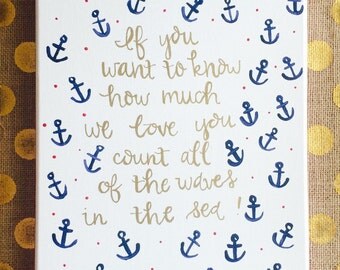 If you
want to know
how much
we love you
count all
of the waves
in the sea!